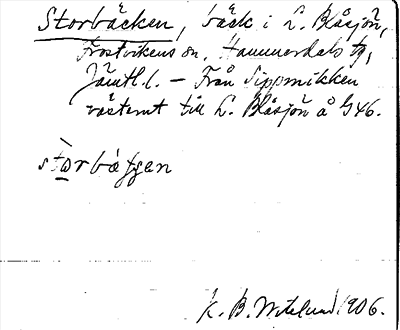 Storbäcken, bäck i L. Blåsjön,
Frostvikens sn, Hammerdals tg,
Jämtl. l. — Från Sippmikken
västerut till L. Blåsjön å G46.
stɷrbäʃʃen
K. B. Wiklund 1906.